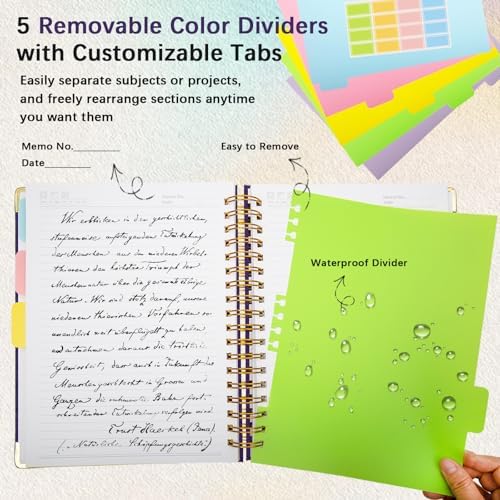 5 Removable Color Dividers
with Customizable Tabs
Easily separate subjects or projects,
and freely rearrange sections anytime
you want them
Memo No.
Date
Easy to Remove
Waterproof Divider
Wir erblicken in der geschichtlichen,
stufenweise aufsteigenden Entwickelung
der Menschen aus den niederen Wirbel-
thieren den höchsten Triumph der
Menschennatur über die gesammte übrige
Natur. Wir sind stolz darauf, unsere
niederen thierischen Vorfahren so
unendlich weit überflügelt zu haben
und entnehmen daraus die tröstliche
Gewissheit, dass auch in Zukunft das
Menschengeschlecht im Grossen und
Ganzen die ruhmvolle Bahn fort-
schreitender Entwickelung verfolgen wird
Ernst Haeckel (Jena).
(Natürliche Schöpfungsgeschichte)